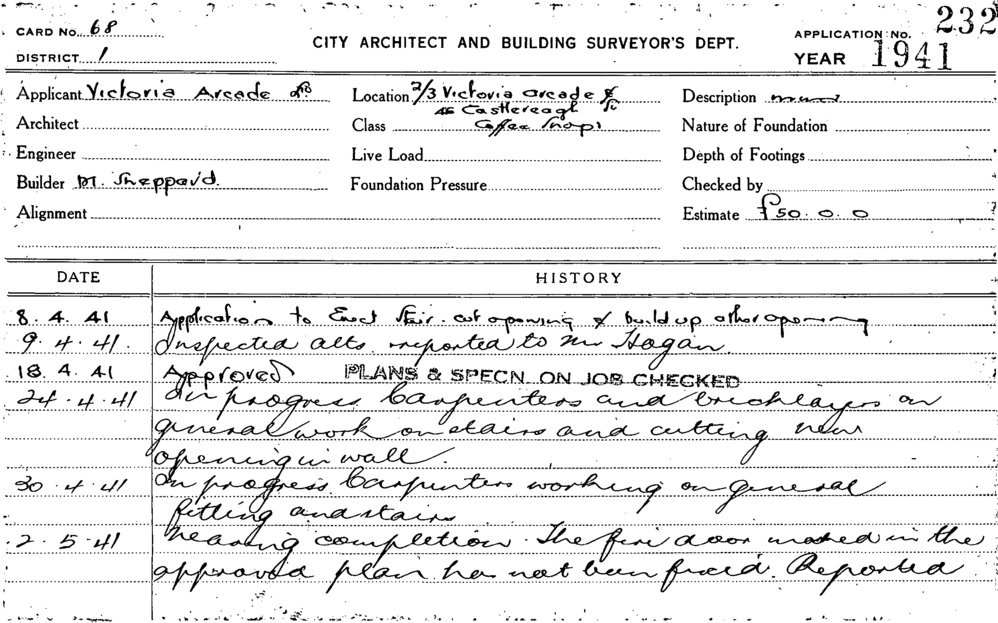 CARD No. 68
232
CITY ARCHITECT AND BUILDING SURVEYOR'S DEPT.
APPLICATION No.
DISTRICT 1
YEAR 1941
Applicant Victoria Arcade Ld
Location 2/3 Victoria arcade &
46 Castlereagh St
Description
Architect
Class Coffee Shops
Nature of Foundation
Engineer
Live Load
Depth of Footings
Builder M. Sheppard.
Foundation Pressure
Checked by
Alignment
Estimate £50.0.0
DATE HISTORY
8.4.41 Application to Erect Stair. cut opening & build up other opening
9.4.41. Inspected alts reported to Mr Hogan.
18.4.41 Approved PLANS & SPECN. ON JOB CHECKED
24.4.41 In progress. Carpenters and bricklayers on
general work on stairs and cutting new
opening in wall.
30.4.41 In progress. Carpenters working on general
fitting and stairs
2.5.41 Nearing completion. The fire door marked in the
approved plan has not been fixed. Reported